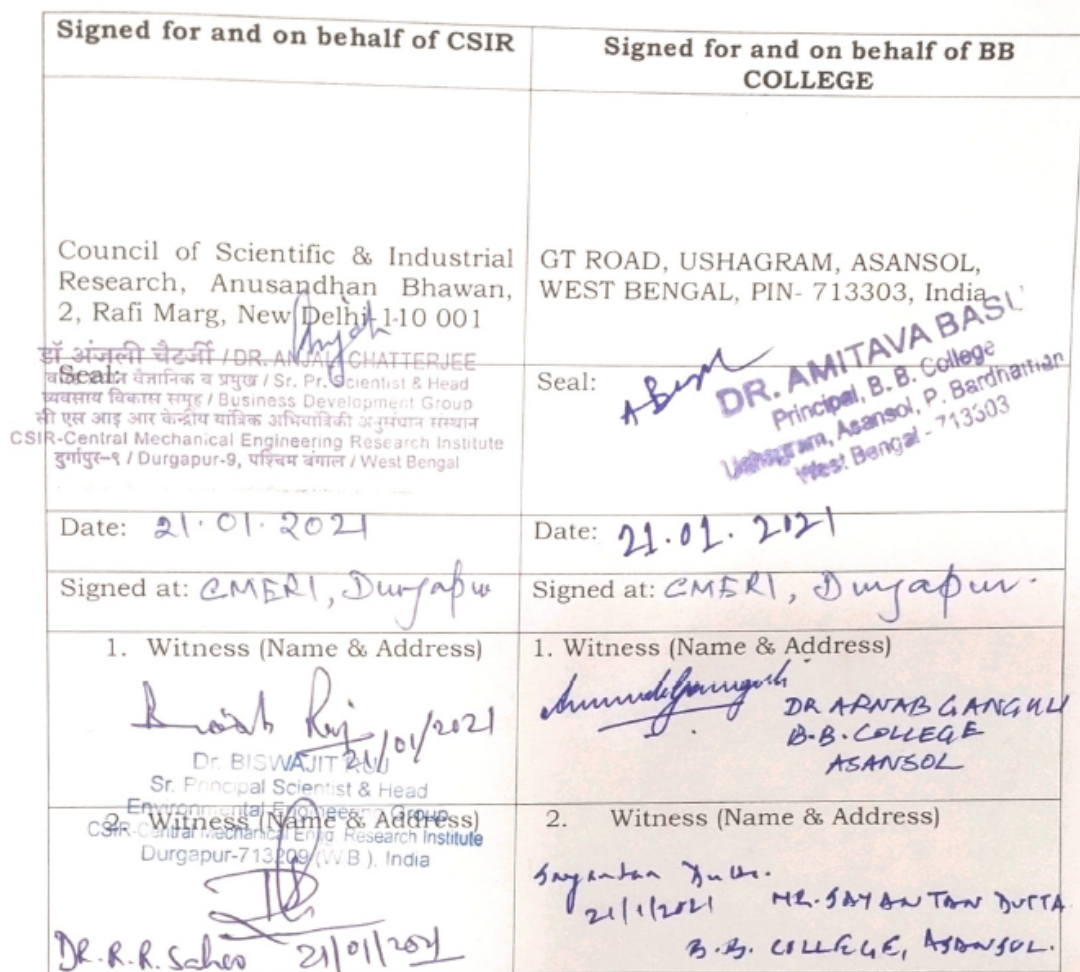 Signed for and on behalf of CSIR
Signed for and on behalf of BB
COLLEGE
Council of Scientific & Industrial
Research, Anusandhan Bhawan,
2, Rafi Marg, New Delhi-110 001
GT ROAD, USHAGRAM, ASANSOL,
WEST BENGAL, PIN- 713303, India
डॉ अंजली चैटर्जी / DR. ANJALI CHATTERJEE
Seal:
वैज्ञानिक व प्रमुख / Sr. Pr. Scientist & Head
व्यवसाय विकास समूह / Business Development Group
सी एस आइ आर केन्द्रीय यांत्रिक अभियांत्रिकी अनुसंधान संस्थान
CSIR-Central Mechanical Engineering Research Institute
दुर्गापुर-९ / Durgapur-9, पश्चिम बंगाल / West Bengal
Seal:
A Basu
DR. AMITAVA BASU
Principal, B. B. College
Ushagram, Asansol, P. Bardhaman
West Bengal - 713303
Date: 21.01.2021
Date: 21.01.2021
Signed at: CMERI, Durgapur
Signed at: CMERI, Durgapur.
1. Witness (Name & Address)
21/01/2021
Dr. BISWAJIT RUJ
Sr. Principal Scientist & Head
Environmental Engineering Group
CSIR-Central Mechanical Engg. Research Institute
Durgapur-713209 (W.B.), India
1. Witness (Name & Address)
DR ARNAB GANGULI
B.B. COLLEGE
ASANSOL
2. Witness (Name & Address)
DR. R. R. Sahoo 21/01/2021
2. Witness (Name & Address)
Sayantan Dutta.
21/1/2021 MR. SAYANTAN DUTTA
B.B. COLLEGE, ASANSOL.